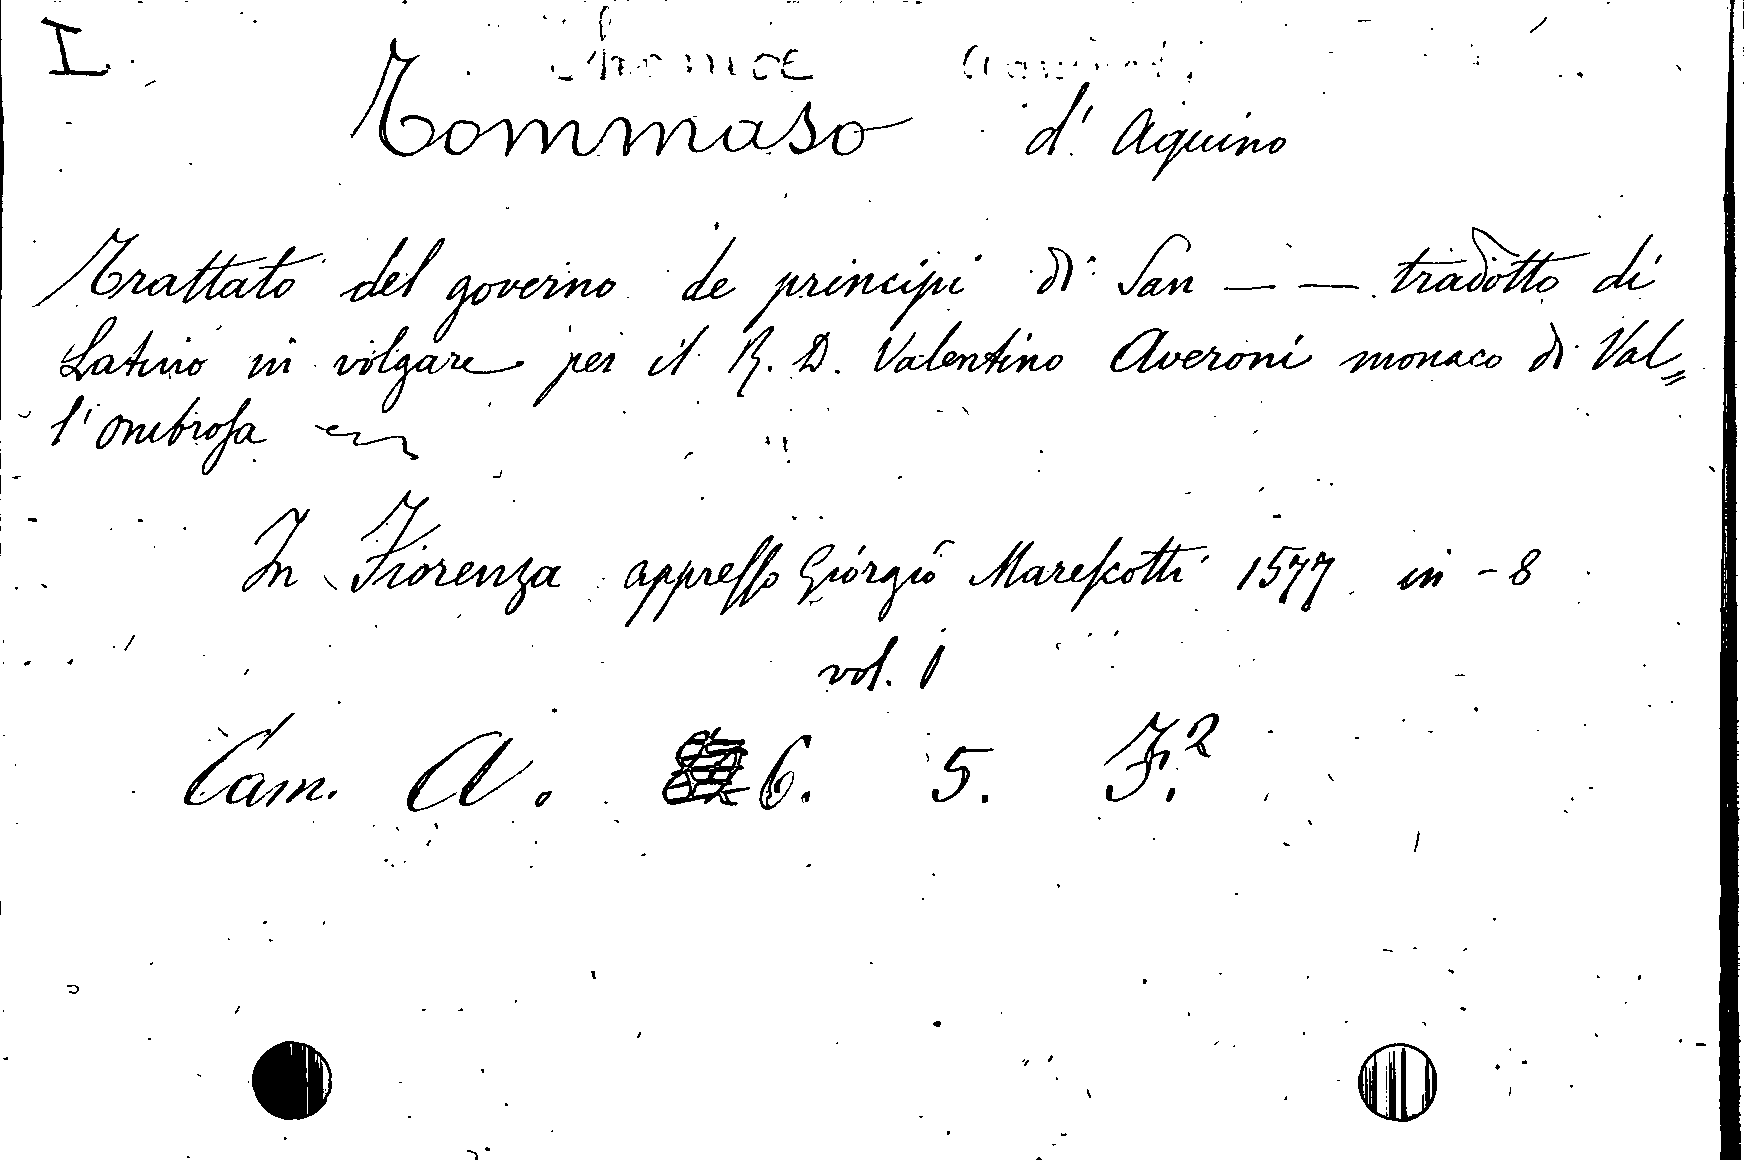 I
Tommaso d'Aquino
Trattato del governo de principi di San — — tradotto di
Latino in volgare per il R. D. Valentino Averoni monaco di Val〃
l'Ombrosa
In Fiorenza appresso Giorgio Marescotti 1577 in-8
vol. 1
Cam. A. 6. 5. F.²